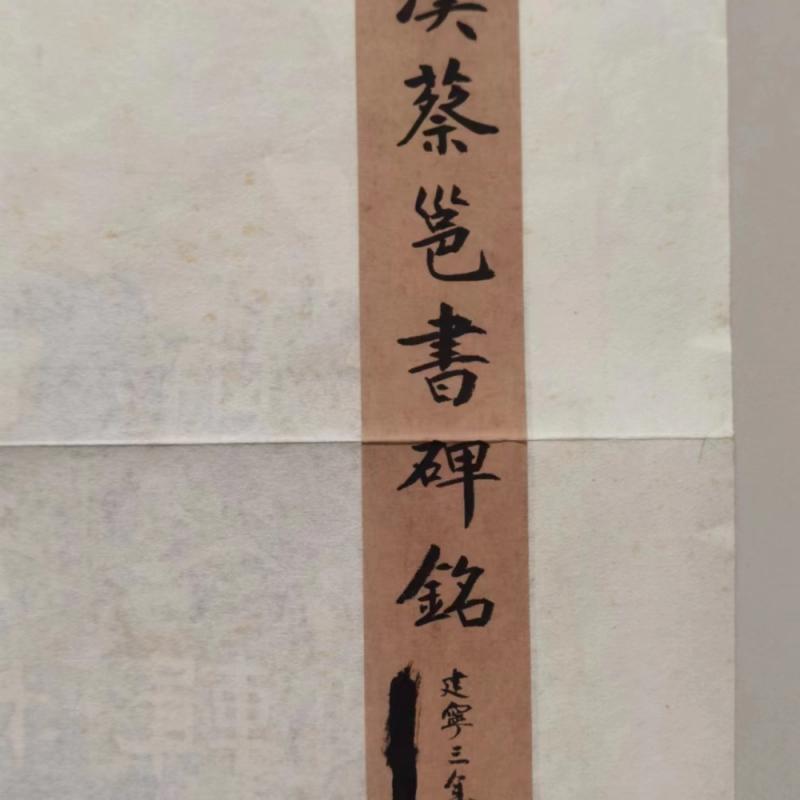 漢蔡邕書碑銘
建寧三年